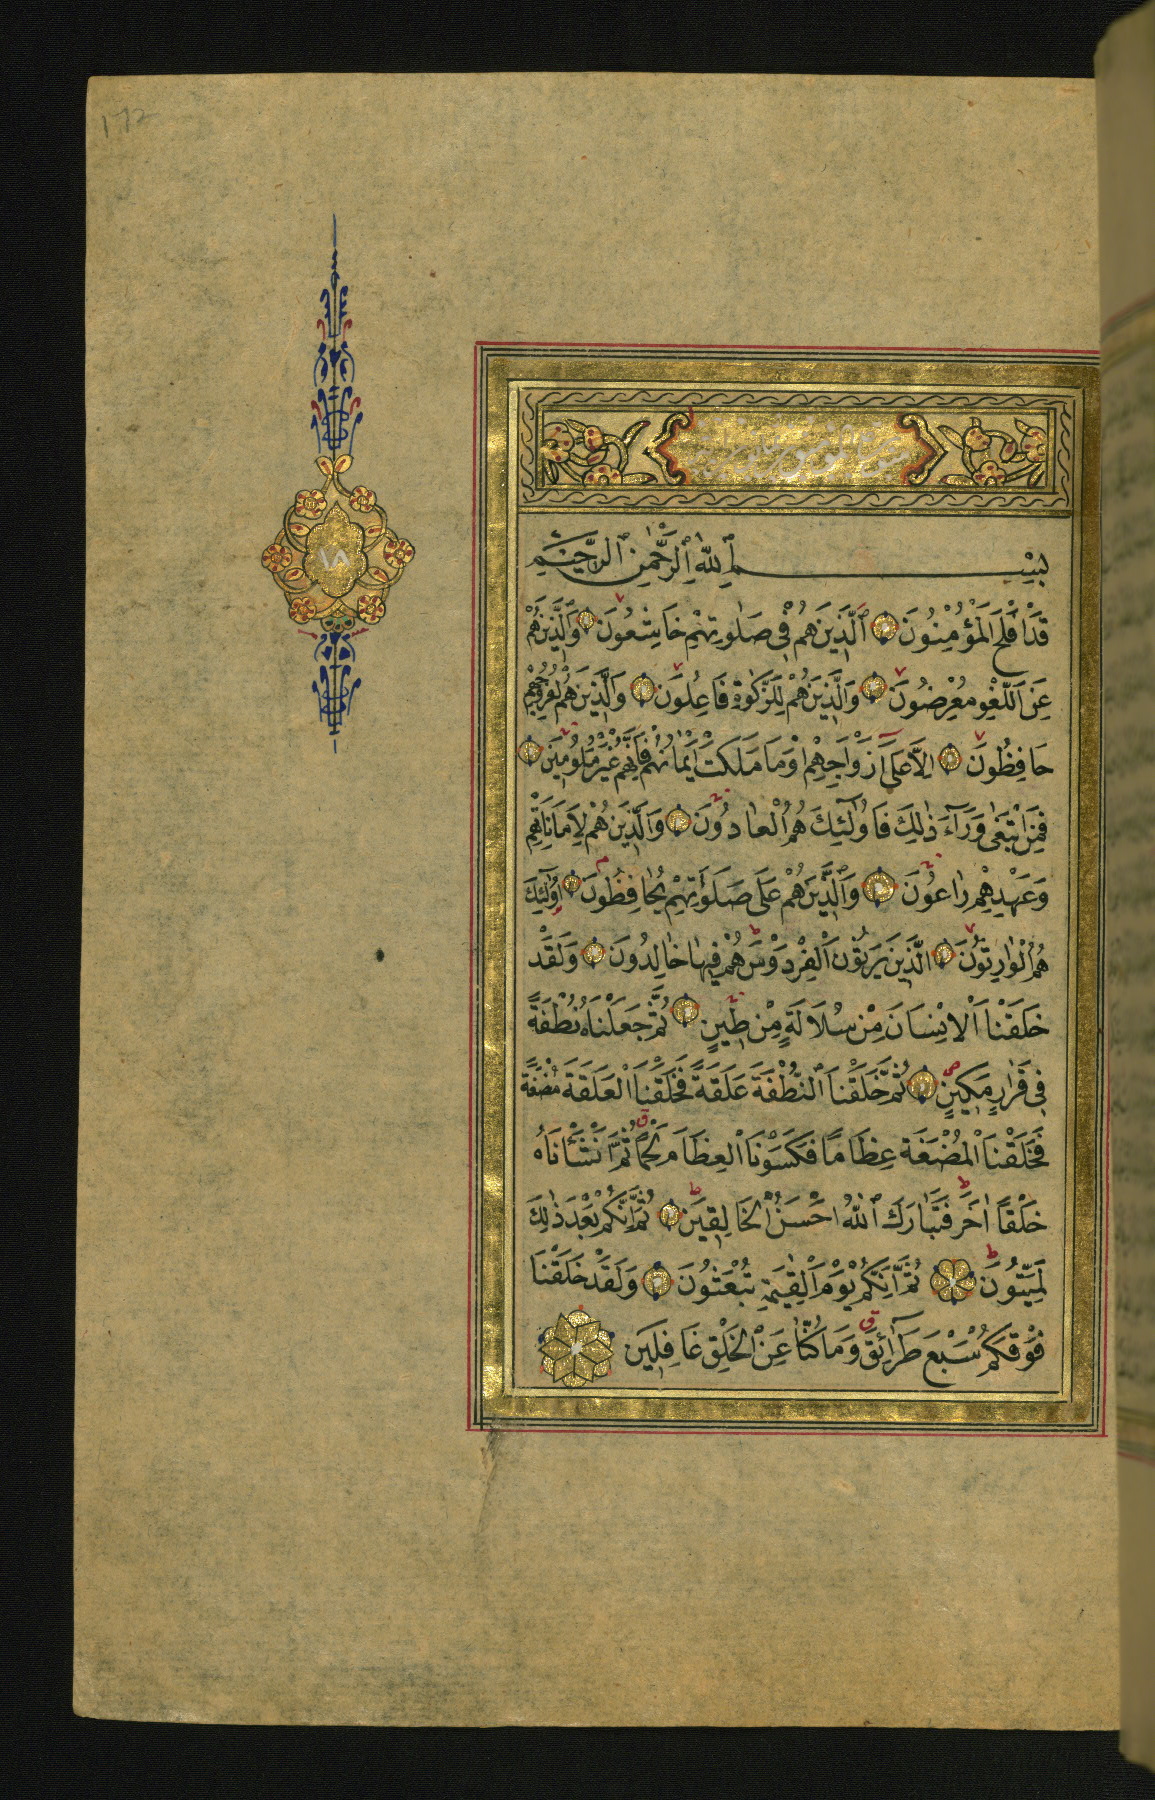 172
١٨
بِسْمِ ٱللّٰهِ ٱلرَّحْمٰنِ ٱلرَّحِيمِ
قَدْ اَفْلَحَ الْمُؤْمِنُونَ ٱلَّذِينَ هُمْ فِى صَلٰوتِهِمْ خَاشِعُونَ وَٱلَّذِينَ هُمْ
عَنِ اللَّغْوِ مُعْرِضُونَ وَالَّذِينَ هُمْ لِلزَّكٰوةِ فَاعِلُونَ وَالَّذِينَ هُمْ لِفُرُوجِهِمْ
حَافِظُونَ اِلَّا عَلَىٓ اَزْوَاجِهِمْ اَوْ مَا مَلَكَتْ اَيْمَانُهُمْ فَاِنَّهُمْ غَيْرُ مَلُومِينَ
فَمَنِ ابْتَغٰى وَرَآءَ ذٰلِكَ فَاُولٰٓئِكَ هُمُ الْعَادُونَ وَالَّذِينَ هُمْ لِاَمَانَاتِهِمْ
وَعَهْدِهِمْ رَاعُونَ وَالَّذِينَ هُمْ عَلَى صَلَوَاتِهِمْ يُحَافِظُونَ اُولٰٓئِكَ
هُمُ الْوَارِثُونَ الَّذِينَ يَرِثُونَ الْفِرْدَوْسَ هُمْ فِيهَا خَالِدُونَ وَلَقَدْ
خَلَقْنَا الْاِنْسَانَ مِنْ سُلَالَةٍ مِنْ طِينٍ ثُمَّ جَعَلْنَاهُ نُطْفَةً
فِى قَرَارٍ مَكِينٍ ثُمَّ خَلَقْنَا ٱلنُّطْفَةَ عَلَقَةً فَخَلَقْنَا الْعَلَقَةَ مُضْغَةً
فَخَلَقْنَا الْمُضْغَةَ عِظَامًا فَكَسَوْنَا الْعِظَامَ لَحْمًا ثُمَّ اَنْشَأْنَاهُ
خَلْقًا اٰخَرَ فَتَبَارَكَ ٱللّٰهُ اَحْسَنُ الْخَالِقِينَ ثُمَّ اِنَّكُمْ بَعْدَ ذٰلِكَ
لَمَيِّتُونَ ثُمَّ اِنَّكُمْ يَوْمَ الْقِيٰمَةِ تُبْعَثُونَ وَلَقَدْ خَلَقْنَا
فَوْقَكُمْ سَبْعَ طَرَآئِقَ وَمَا كُنَّا عَنِ الْخَلْقِ غَافِلِينَ